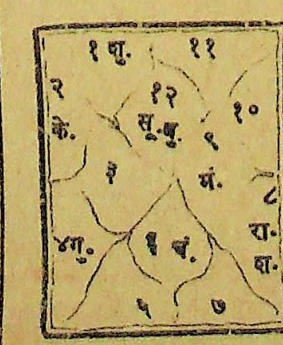 १ शु. ११
२
१२
१०
के.
सू.बु.
९
३
मं.
८
४गु.
६ चं.
रा.
श.
५ ७